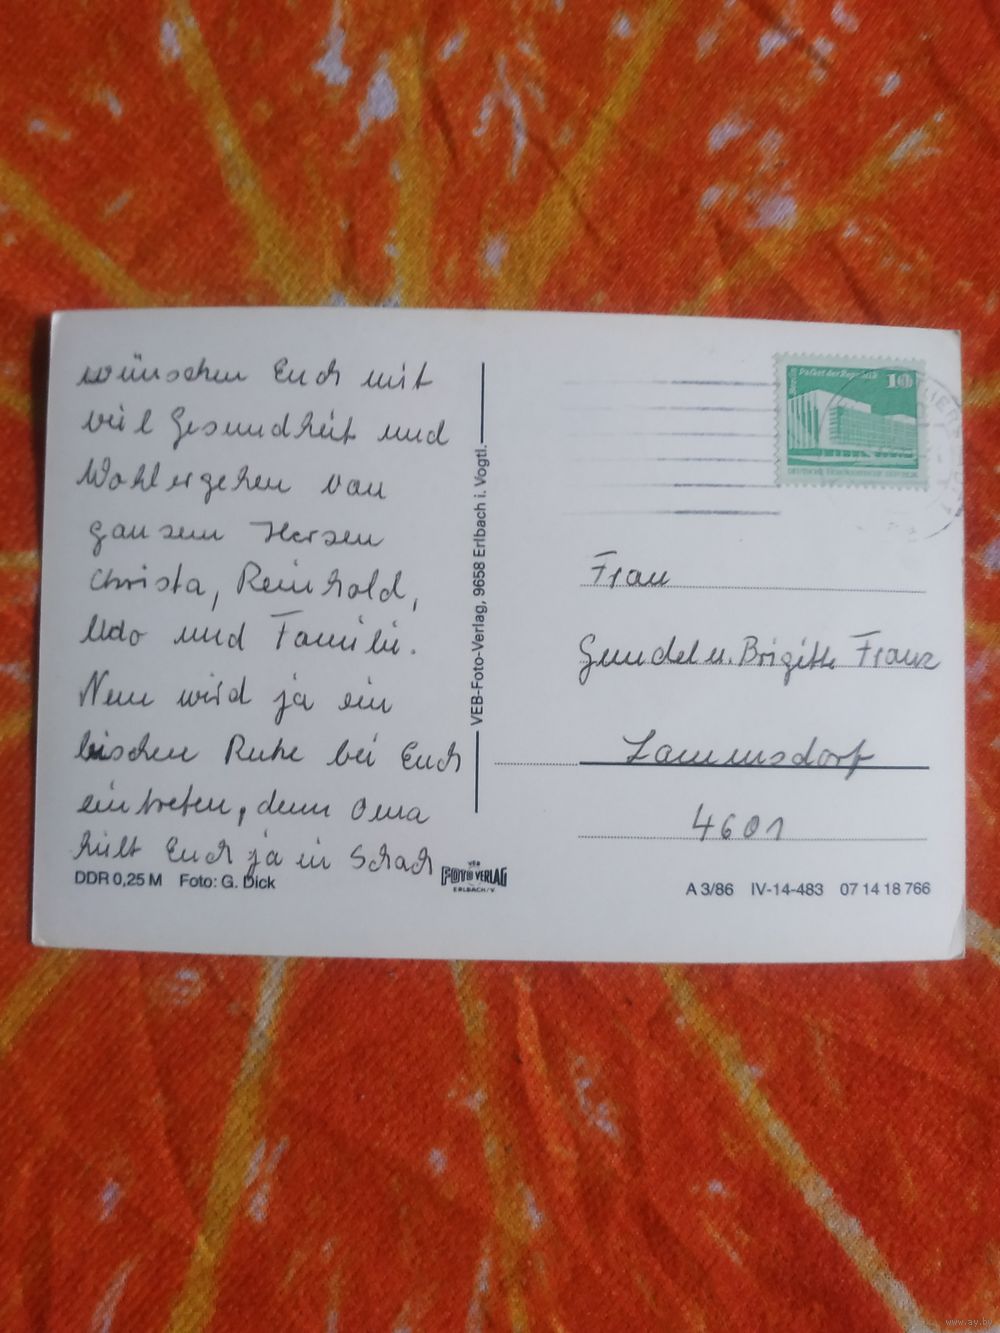 wünschen Euch mit
viel Gesundheit und
Wohlergehen von
ganzem Herzen
Christa, Reinhold,
Udo und Familie.
Nun wird ja ein
bischen Ruhe bei Euch
eintreten, denn Oma
hält Euch ja in Schach
DDR 0,25 M Foto: G. Dick
VEB-Foto-Verlag, 9658 Erlbach i. Vogtl.
VEB
FOTO VERLAG
ERLBACH/V
Berlin Palast der Republik 10
DEUTSCHE DEMOKRATISCHE REPUBLIK
Frau
Gundel u. Brigitte Franz
4601
A 3/86 IV-14-483 07 14 18 766
www.ay.by